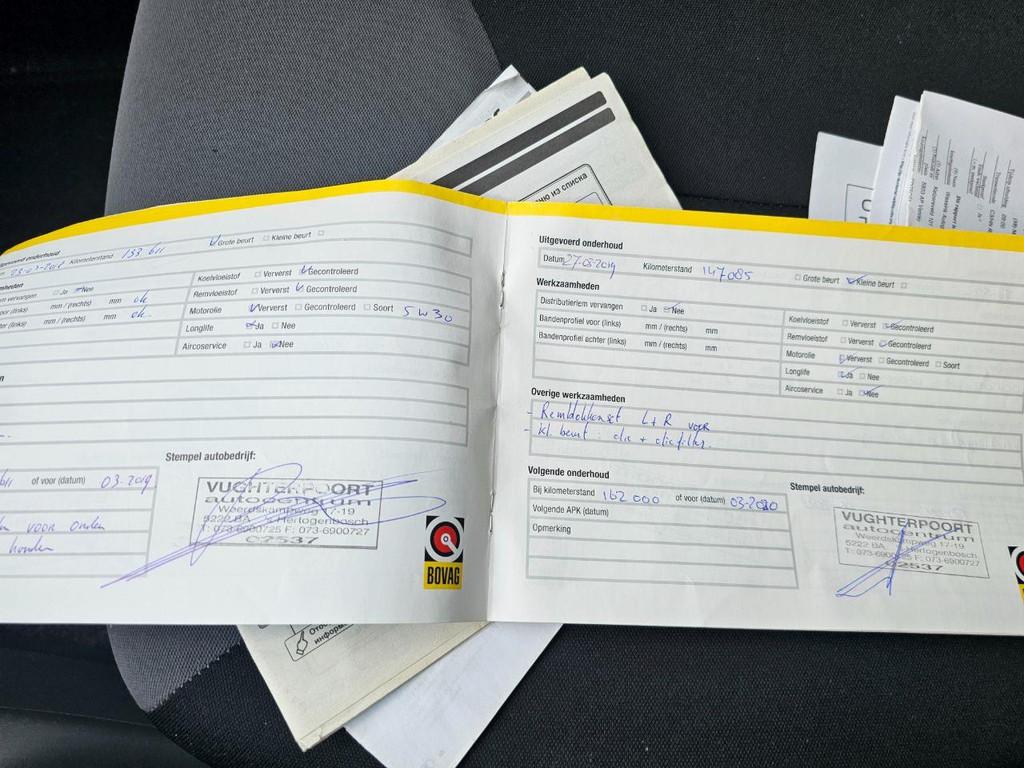 Kilometerstand 133 611 Grote beurt Kleine beurt
Koelvloeistof Ververst Gecontroleerd
vervangen Ja Nee
Remvloeistof Ververst Gecontroleerd
(links) mm / (rechts) mm ok
Motorolie Ververst Gecontroleerd Soort 5W30
(links) mm / (rechts) mm ok
Longlife Ja Nee
Aircoservice Ja Nee
Stempel autobedrijf:
of voor (datum) 03-2019
voor onder
houden
VUGHTERPOORT
autocentrum
Weerdskampweg 17-19
5222 BA 's Hertogenbosch
T: 073-6900725 F: 073-6900727
C2537
BOVAG
Uitgevoerd onderhoud
Datum 27-08-2019 Kilometerstand 147085 Grote beurt Kleine beurt
Werkzaamheden
Distributieriem vervangen Ja Nee
Koelvloeistof Ververst Gecontroleerd
Bandenprofiel voor (links) mm / (rechts) mm
Remvloeistof Ververst Gecontroleerd
Bandenprofiel achter (links) mm / (rechts) mm
Motorolie Ververst Gecontroleerd Soort
Longlife Ja Nee
Aircoservice Ja Nee
Overige werkzaamheden
- Remblokkenset L+R voor
- kl. beurt: olie + oliefilter.
Volgende onderhoud
Bij kilometerstand 162 000 of voor (datum) 03-2020
Volgende APK (datum)
Opmerking
Stempel autobedrijf:
VUGHTERPOORT
autocentrum
Weerdskampweg 17-19
5222 BA 's Hertogenbosch
T: 073-6900725 F: 073-6900727
C2537
ню из списка